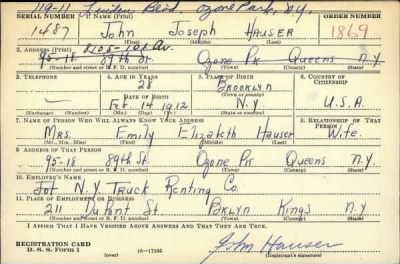 119-11 Linden Blvd, Ozone Park, N.Y.
SERIAL NUMBER 1. NAME (Print) ORDER NUMBER
1487 John Joseph Hauser 1869
(First) (Middle) (Last)
2. ADDRESS (Print) 8105-101 Av.
95-18 89th St. Ozone Pk Queens N.Y.
(Number and street or R. F. D. number) (Town) (County) (State)
3. TELEPHONE 4. AGE IN YEARS 5. PLACE OF BIRTH 6. COUNTRY OF CITIZENSHIP
28 Brooklyn
DATE OF BIRTH (Town or county)
Feb. 14 1912 N.Y U.S.A.
(Exchange) (No.) (Mo.) (Day) (Yr.) (State or country)
7. NAME OF PERSON WHO WILL ALWAYS KNOW YOUR ADDRESS 8. RELATIONSHIP OF THAT PERSON
Mrs. Emily Elizabeth Hauser Wife.
(Mr., Mrs., Miss) (First) (Middle) (Last)
9. ADDRESS OF THAT PERSON
95-18 89th St. Ozone Pk Queens N.Y.
(Number and street or R. F. D. number) (Town) (County) (State)
10. EMPLOYER'S NAME
N.Y. Truck Renting Co.
11. PLACE OF EMPLOYMENT OR BUSINESS
211 DuPont St. Bklyn Kings N.Y.
(Number and street or R. F. D. number) (Town) (County) (State)
I AFFIRM THAT I HAVE VERIFIED ABOVE ANSWERS AND THAT THEY ARE TRUE.
REGISTRATION CARD
D. S. S. Form 1 (over) 16-17105 John Hauser